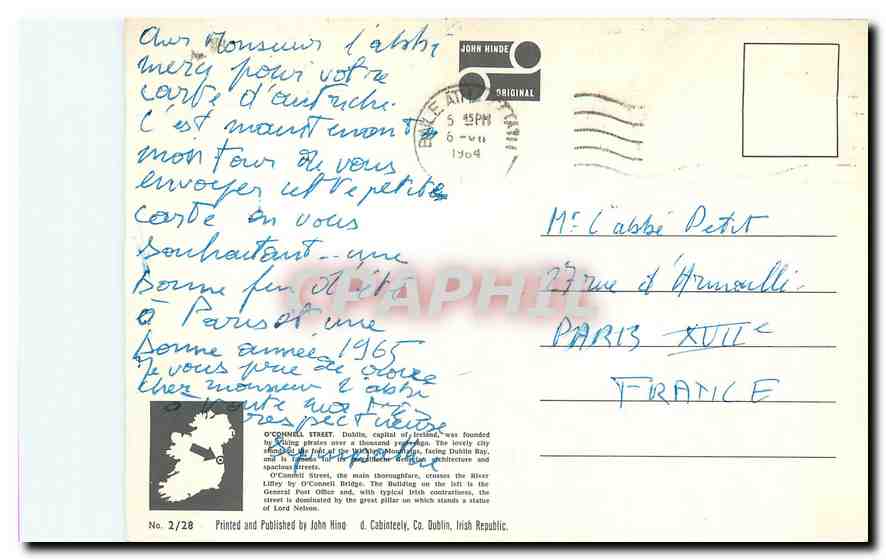 Cher Monsieur l'abbé
merci pour votre
carte d'autriche.
C'est maintenant
mon tour de vous
envoyer cette petite
carte en vous
souhaitant une
bonne fin d'été
à Paris et une
bonne année 1965
Je vous prie de croire
cher monsieur l'abbé
à toute ma très
respectueuse
sympathie
JOHN HINDE
ORIGINAL
BAILE ATHA CLIATH
5 45PM
6 -
1964
Mr l'abbé Petit
27 rue d'Armaillé
PARIS XVIIe
FRANCE
CPAPHIL
O'CONNELL STREET. Dublin, capital of Ireland, was founded
by Viking pirates over a thousand years ago. The lovely city
stands at the foot of the Wicklow Mountains, facing Dublin Bay,
and is famous for its magnificent Georgian architecture and
spacious streets.
O'Connell Street, the main thoroughfare, crosses the River
Liffey by O'Connell Bridge. The Building on the left is the
General Post Office and, with typical Irish contrariness, the
street is dominated by the great pillar on which stands a statue
of Lord Nelson.
No. 2/28 Printed and Published by John Hino d. Cabinteely, Co. Dublin, Irish Republic.